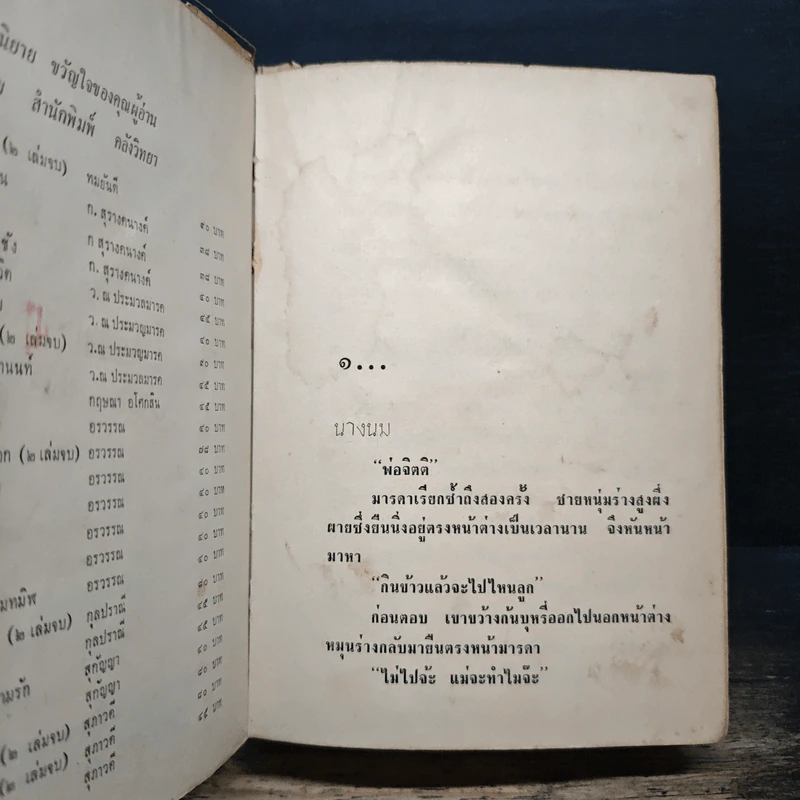 นิยาย ขวัญใจของคุณผู้อ่าน
สำนักพิมพ์ คลังวิทยา
(๒ เล่มจบ) ทมยันตี
ก. สุรางคนางค์ ๙๐ บาท
ก สุรางคนางค์ ๓๘ บาท
ก. สุรางคนางค์ ๓๘ บาท
ว. ณ ประมวลมารค ๔๐ บาท
ว. ณ ประมวญมารค ๔๕ บาท
(๒ เล่มจบ) ว.ณ ประมวญมารค ๔๐ บาท
านนท์ ว. ณ ประมวลมารค ๙๐ บาท
กฤษณา อโศกสิน ๔๕ บาท
อรวรรณ ๔๕ บาท
อก (๒ เล่มจบ) อรวรรณ ๗๘ บาท
อรวรรณ ๔๐ บาท
อรวรรณ ๔๐ บาท
อรวรรณ ๔๐ บาท
อรวรรณ ๔๐ บาท
มทมิพ อรวรรณ ๔๐ บาท
(๒ เล่มจบ) กุลปราณี ๘๐ บาท
กุลปราณี ๔๕ บาท
สุกัญญา ๔๕ บาท
ามรัก สุกัญญา ๘๐ บาท
สุภาวดี ๘๐ บาท
(๒ เล่มจบ) สุภาวดี ๔๕ บาท
(๒ เล่มจบ) สุภาวดี
๑...
นางนม
“พ่อจิตติ”
มารดาเรียกซ้ำถึงสองครั้ง ชายหนุ่มร่างสูงผึ่ง
ผายซึ่งยืนนิ่งอยู่ตรงหน้าต่างเป็นเวลานาน จึงหันหน้า
มาหา
“กินข้าวแล้วจะไปไหนลูก”
ก่อนตอบ เขาขว้างก้นบุหรี่ออกไปนอกหน้าต่าง
หมุนร่างกลับมายืนตรงหน้ามารดา
“ไม่ไปจ้ะ แม่จะทำไมจ๊ะ”